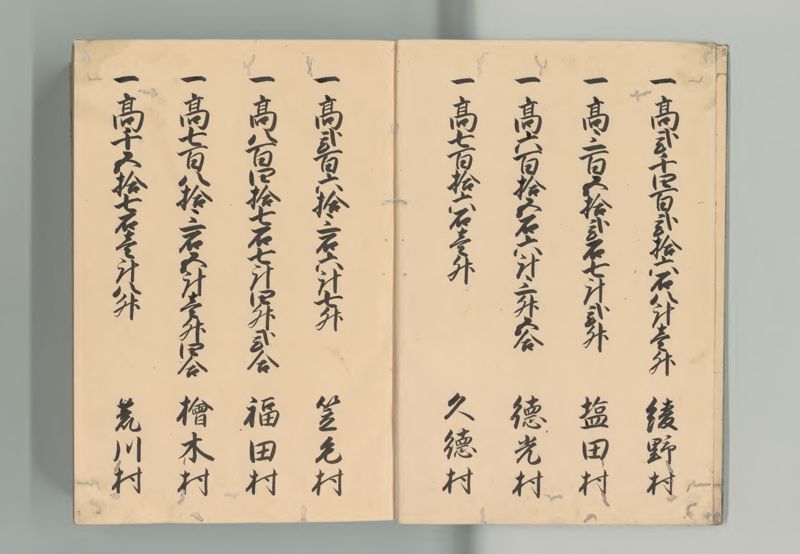 一高弐千四百弐拾六石八斗壱升 綾野村
一高三百五拾弐石七斗弐升 塩田村
一高六百拾五石六斗三升五合 德光村
一高七百拾六石壱升 久德村
一高弐百六拾三石六斗七升 笠毛村
一高八百四拾七石七斗四升弐合 福田村
一高七百八拾三石五斗壱升四合 檜木村
一高千五拾七石壱斗八升 荒川村